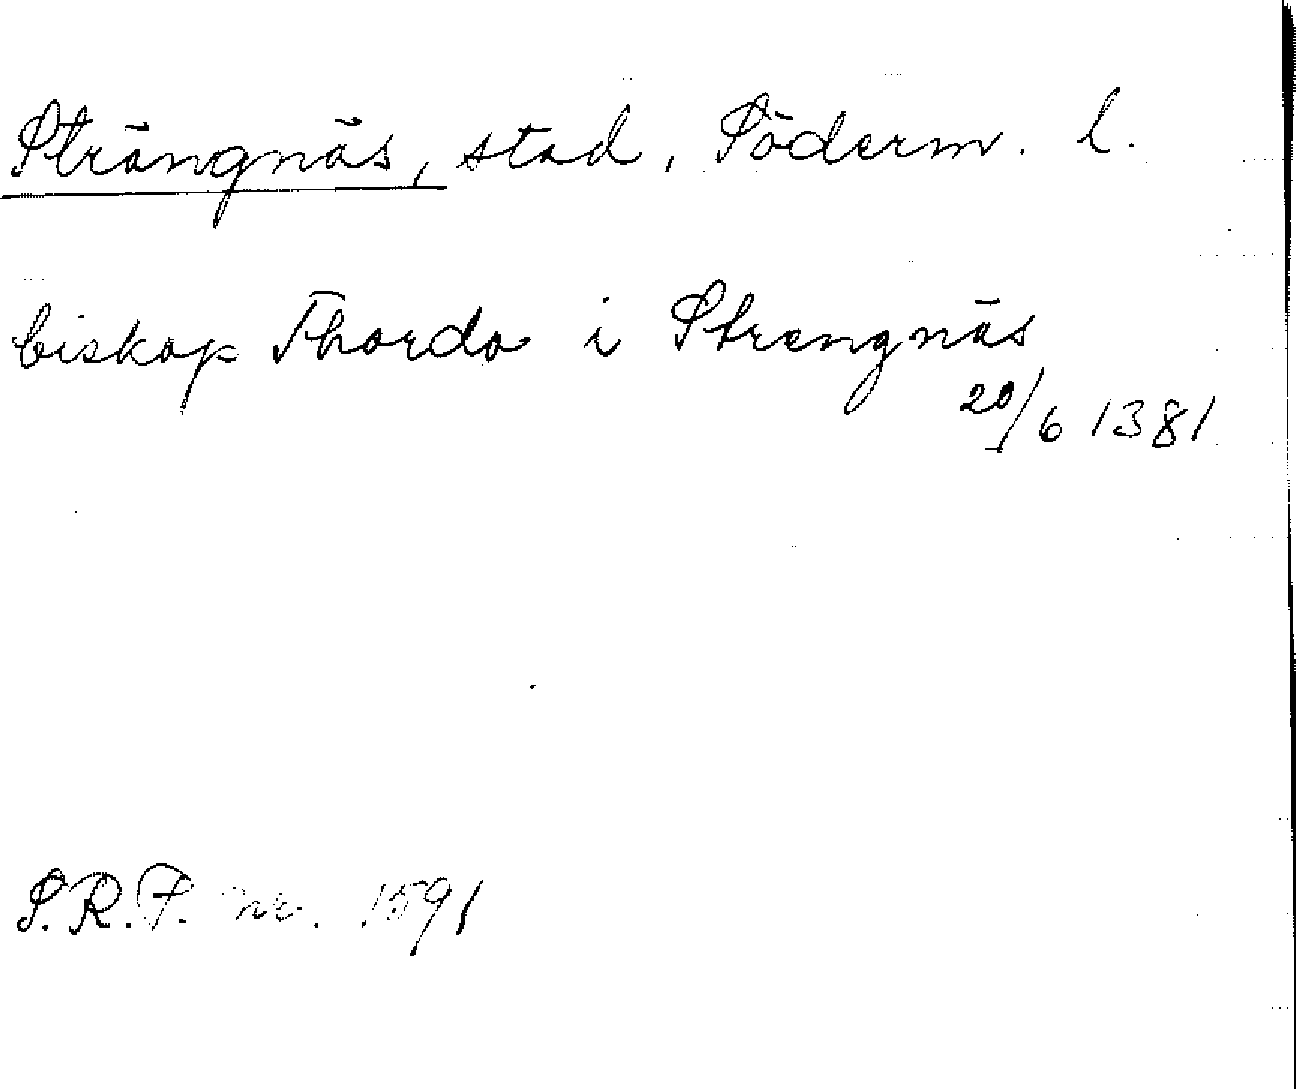 Strängnäs, stad, Söderm. l.
biskop Thorda i Strengnäs
20/6 1381
S.R.P. nr. 1591